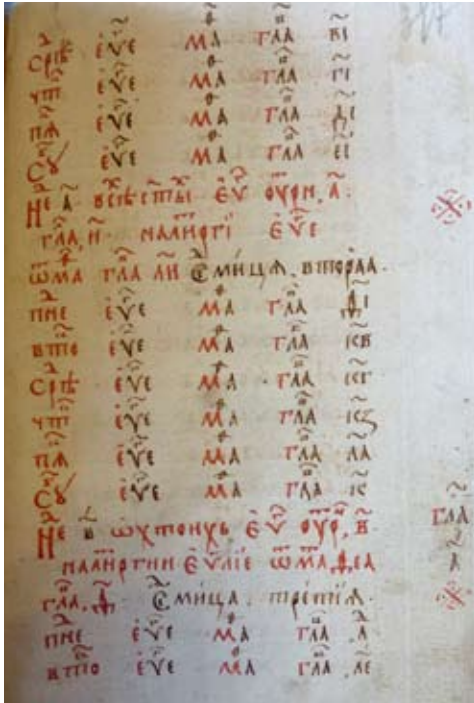 Срⷣѣ еѵ҃е маⷴ҇ глаⷡ҇ в҃і
чтⷡ҇ еѵ҃е маⷴ҇ глаⷡ҇ г҃і
пѧⷦ҇ еѵ҃е маⷴ҇ глаⷡ҇ д҃і
Сꙋⷠ҇ еѵ҃е маⷴ҇ глаⷡ҇ е҃і
Неⷣ а҃ всѣⷯ ст҃ыⷯ еѵ҃ оутрн, а҃.
глаⷡ҇, н҃. налиⷮргїи еѵ҃е
ѿ ма гла ли С҃мица. втораа.
пнеⷣ еѵ҃е маⷴ҇ глаⷡ҇
втоⷬ еѵ҃е маⷴ҇ глаⷡ҇ к҃в
Срⷣѣ еѵ҃е маⷴ҇ глаⷡ҇ к҃г
чтⷡ҇ еѵ҃е маⷴ҇ глаⷡ҇
пѧⷦ҇ еѵ҃е маⷴ҇ глаⷡ҇ л҃а
Сꙋⷠ҇ еѵ҃е маⷴ҇ глаⷡ҇ к҃
Неⷣ в҃ еѵ҃ оутⷬ, в҃
налиⷮргии еѵ҃лїе ѿ ма
глаⷡ҇, С҃мица. третиѧ.
пнеⷣ еѵ҃е маⷴ҇ глаⷡ҇ л҃
втоⷬ еѵ҃е маⷴ҇ глаⷡ҇ л҃е
глаⷡ҇
а҃